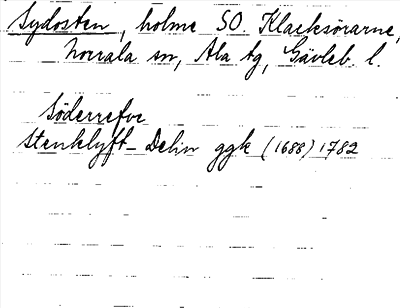 Sydosten, holme SO. Klacksörarne,
Norrala sn, Ala tg, Gävleb. l.
Söderrefve
Stenklyft-Delin ggk (1688) 1782